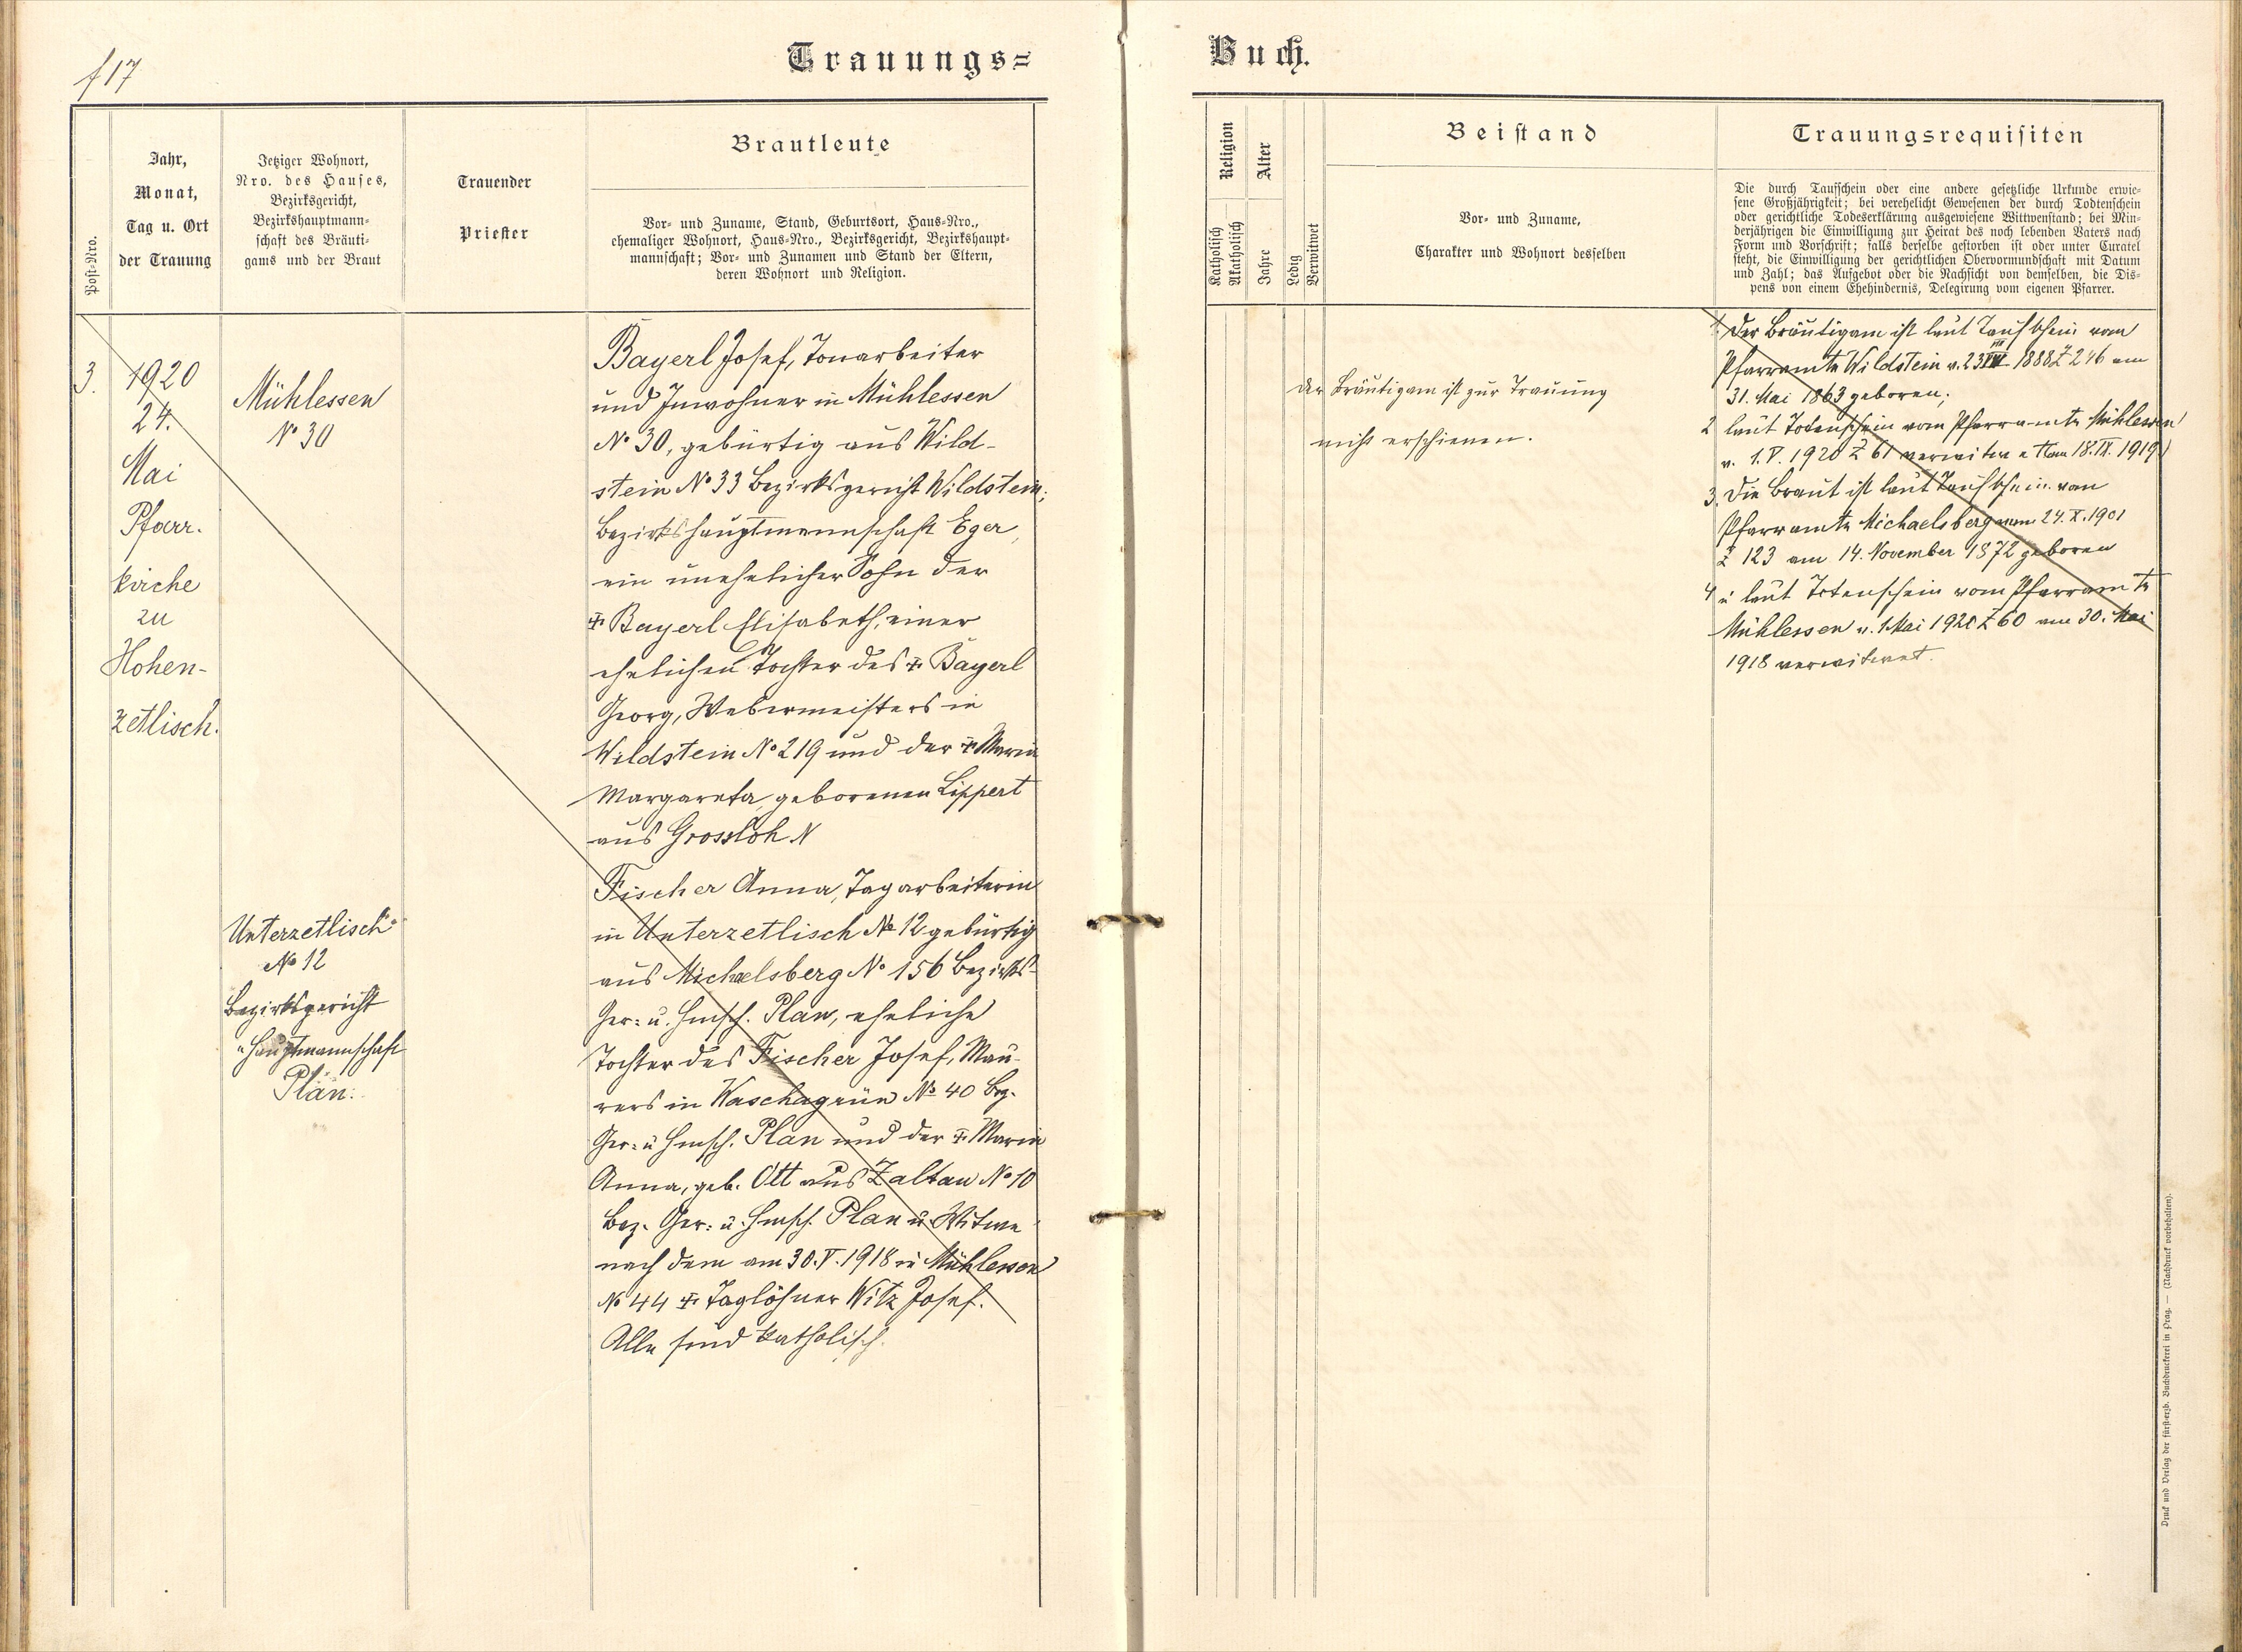 f 17
Trauungs=
Buch.
Post-Nro.
Jahr,
Monat,
Tag u. Ort
der Trauung
Jetziger Wohnort,
Nro. des Hauses,
Bezirksgericht,
Bezirkshauptmann=
schaft des Bräuti=
gams und der Braut
Trauender
Priester
Brautleute
Vor- und Zuname, Stand, Geburtsort, Haus-Nro.,
ehemaliger Wohnort, Haus-Nro., Bezirksgericht, Bezirkshaupt=
mannschaft; Vor- und Zunamen und Stand der Eltern,
deren Wohnort und Religion.
3.
1920
24.
Mai
Pfarr.
kirche
zu
Hohen-
zetlisch.
Mühlessen
No 30
Unterzetlisch
No 12
Bezirksgericht
" Hauptmannschaft
Plan.
Bayerl Josef, Tonarbeiter
und Inwohner in Mühlessen
No 30, gebürtig aus Wild-
stein No 33 Bezirksgericht Wildstein;
Bezirkshauptmannschaft Eger,
ein unehelicher Sohn der
† Bayerl Elisabeth, einer
ehelichen Tochter des † Bayerl
Georg, Webermeisters in
Wildstein No 219 und der † Maria
Margareta, geborenen Lippert
aus Grossloh N
Fischer Anna, Tagarbeiterin
in Unterzetlisch No 12 gebürtig
aus Michaelsberg No 156 Bezirks-
Ger: u. Hmsch. Plan, eheliche
Tochter des Fischer Josef, Mau-
rers in Waschagrün No 40 Bez.
Ger: u Hmsch. Plan und der † Maria
Anna, geb. Ott aus Zaltau No 10
Bez. Ger: u. Hmsch. Plan u. Witwe
nach dem am 30. V. 1918 in Mühlessen
No 44 † Taglöhner Witz Josef.
Alle sind katholisch.
Religion
Katholisch
Akatholisch
Alter
Jahre
Ledig
Verwitwet
Beistand
Vor- und Zuname,
Charakter und Wohnort desselben
der Bräutigam ist zur Trauung
nicht erschienen.
Trauungsrequisiten
Die durch Taufschein oder eine andere gesetzliche Urkunde erwie=
sene Großjährigkeit; bei verehelicht Gewesenen der durch Todtenschein
oder gerichtliche Todeserklärung ausgewiesene Wittwenstand; bei Min=
derjährigen die Einwilligung zur Heirat des noch lebenden Vaters nach
Form und Vorschrift; falls derselbe gestorben ist oder unter Curatel
steht, die Einwilligung der gerichtlichen Obervormundschaft mit Datum
und Zahl; das Aufgebot oder die Nachsicht von demselben, die Dis=
pens von einem Ehehindernis, Delegirung vom eigenen Pfarrer.
1. Der Bräutigam ist laut Taufschein vom
Pfarramte Wildstein v. 23 1888 Z 246 am
31. Mai 1863 geboren;
2 laut Totenschein vom Pfarramte Mühlessen
v. 1. V. 1920 Z 61 verwitwe am 18. IX. 1919)
3. Die Braut ist laut Taufschein vom
Pfarramte Michaelsberg vom 24. X. 1901
Z 123 am 14. November 1872 geboren
4 u laut Totenschein vom Pfarramte
Mühlessen v. 1 Mai 1920 Z 60 am 30. Mai
1918 verwitwet.
Druck und Verlag der fürsterzb. Buchdruckerei in Prag. — (Nachdruck vorbehalten).